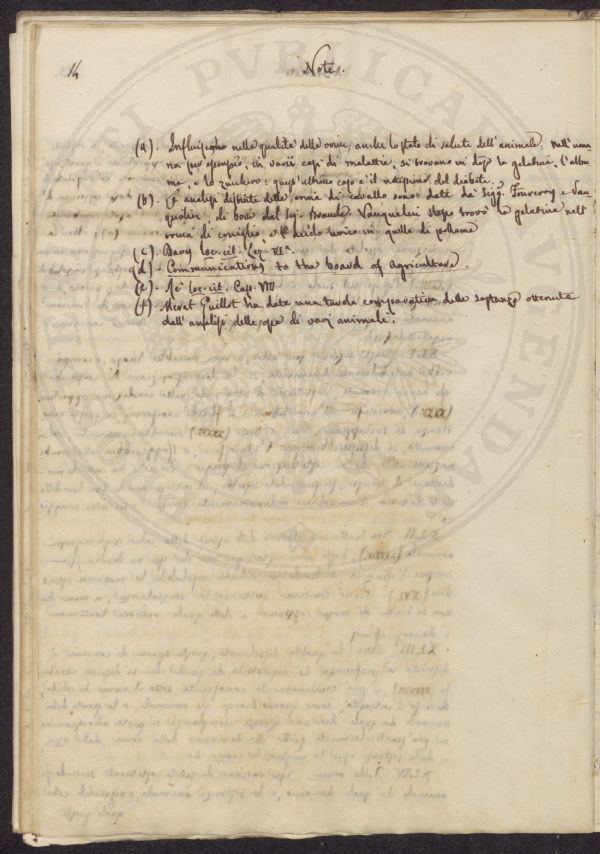 14
Note.
(a). Influiscono nelle qualità delle orine, anche lo stato di salute dell'animale: nell'uma
na per esempio, in varii casi di malattie, si trovano in esse la gelatina, l'albu
me, e lo zucchero: quest'ultimo caso è il diabete.
(b). Le analisi delle orine di cavallo sono date da Sigg. Fourcroy e Vau
quelin; di bove dal Sig. Brande. Vauquelin stesso trovò la gelatina nell'
orina di coniglio, e l'acido urico in quella di pollame
(c). Davy loc. cit. Lez. VIa.
(d). Communications to the board of agriculture.
(e). loc. cit. Cap. VIII
(f). Merat Guillot ha data una tavola comparativa delle sostanze ottenute
dall'analisi delle ossa di varj animali.